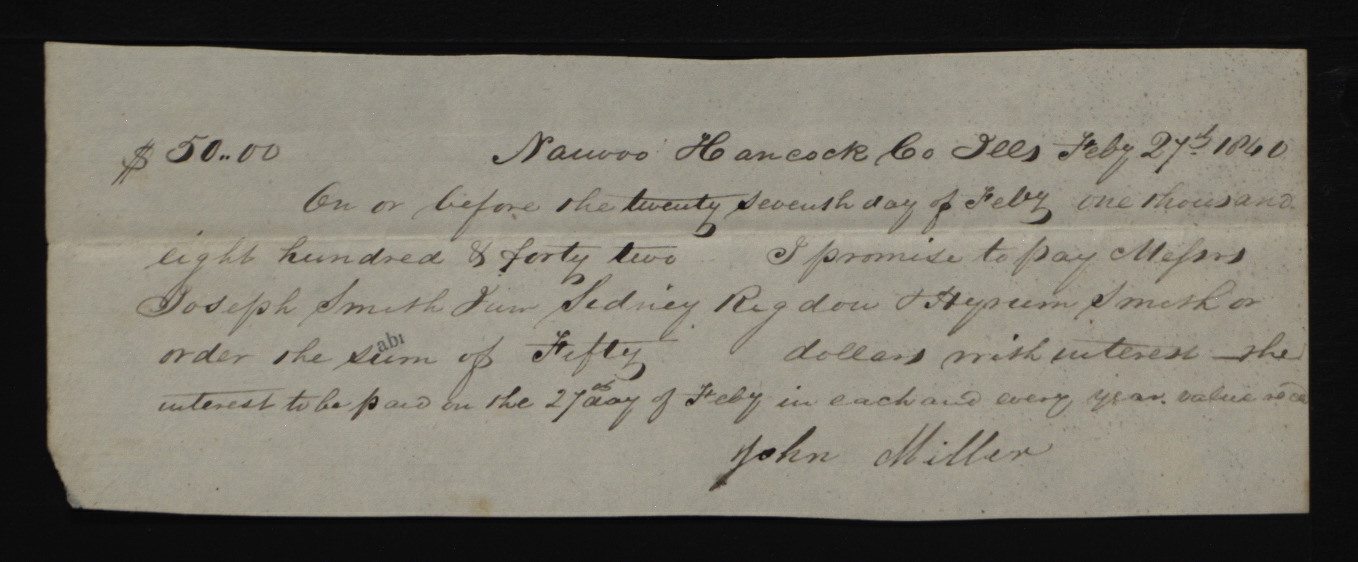 $50..00 Nauvoo Hancock Co Ills Feby 27th 1840
On or before the twenty seventh day of Feby one thousand
eight hundred & forty two I promise to pay Messrs
Joseph Smith Jun Sidney Rigdon & Hyrum Smith or
order the sum of Fifty dollars with interest the
abi
interest to be paid on the 27th day of Feby in each and every year. value recd
John Miller